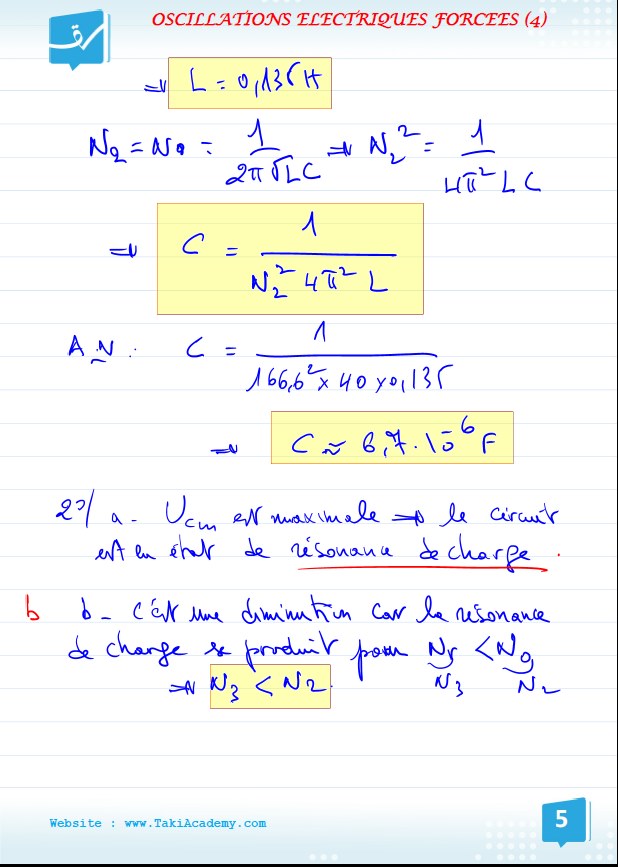 OSCILLATIONS ELECTRIQUES FORCEES (4)
⇒ L = 0,135 H
N₂ = N₀ = 1 / (2π√LC) ⇒ N₂² = 1 / (4π² L C)
⇒ C = 1 / (N₂² 4π² L)
A.N : C = 1 / (166,6² × 40 × 0,135)
⇒ C ≈ 6,7 . 10⁻⁶ F
2°/ a - Ucm est maximale ⇒ le circuit
est en état de résonance de charge.
b b - C'est une diminution car la résonance
de charge se produit pour Nr < N₀
⇒ N₃ < N₂. N₃ N₂
Website : www.TakiAcademy.com
5